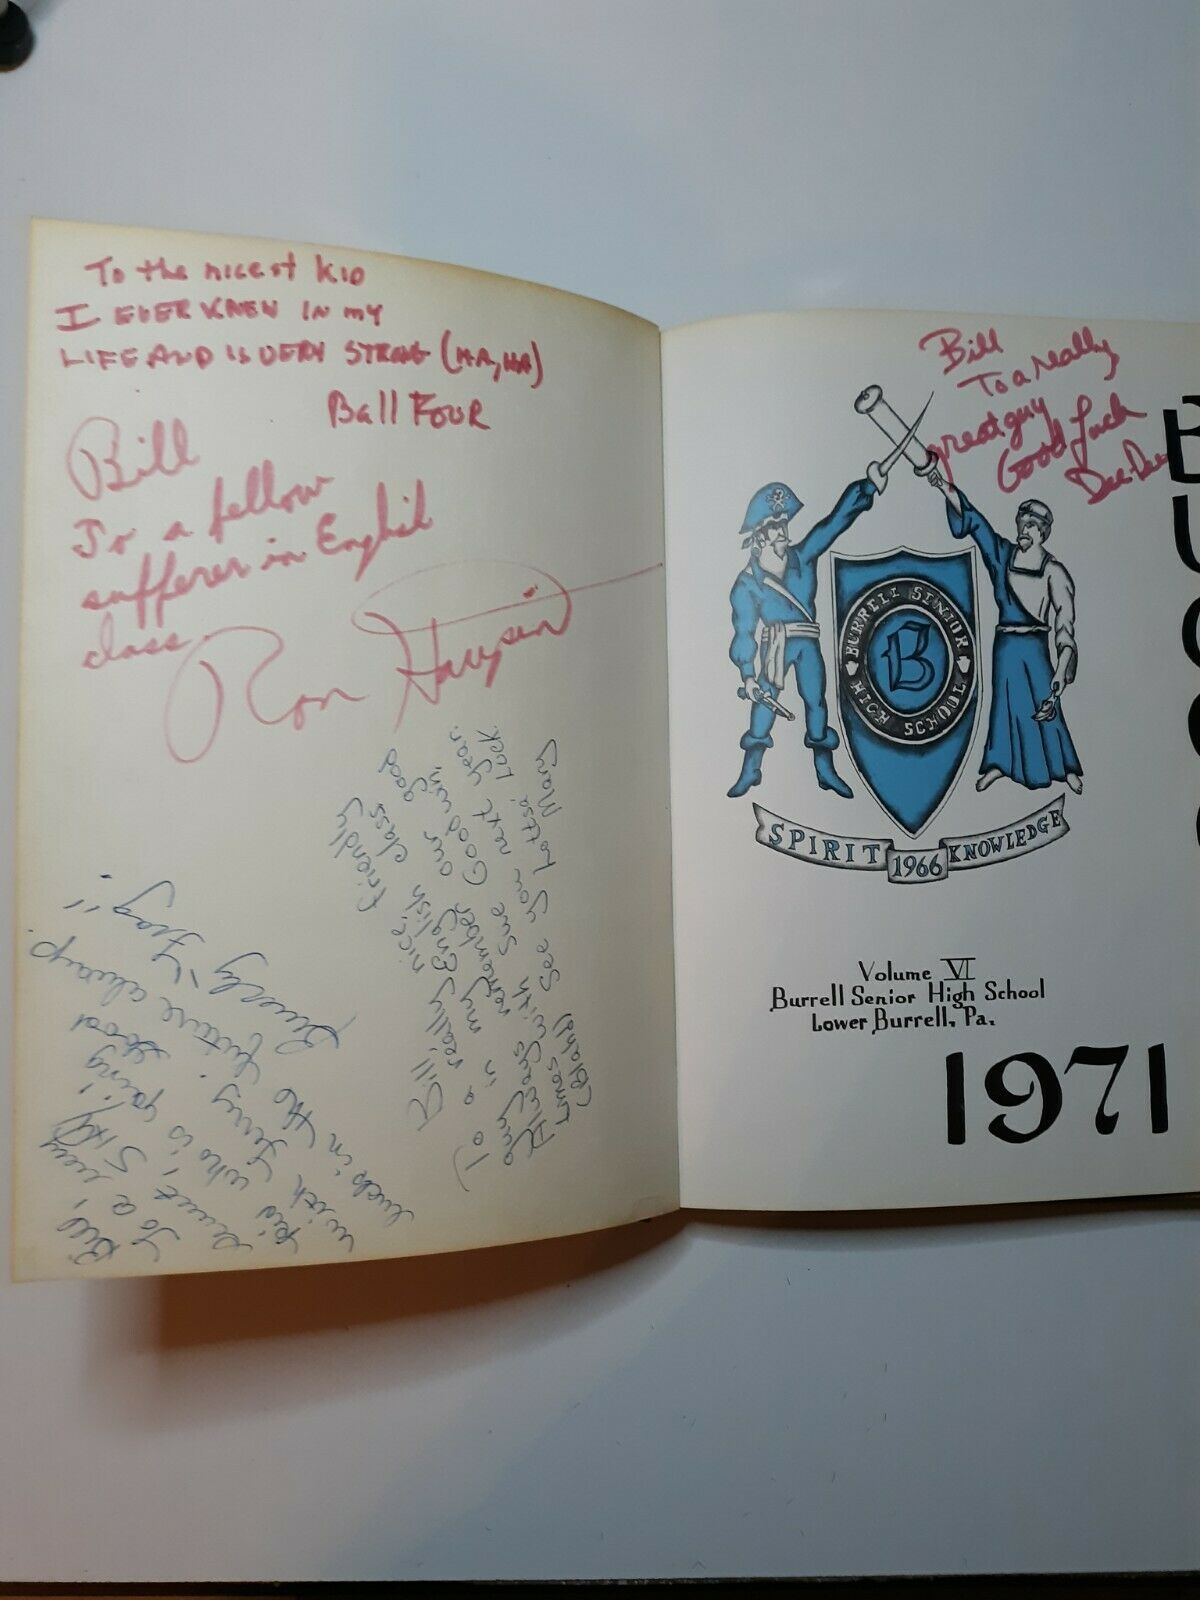 To the nicest kid
I EVER KNEW IN my
LIFE AND IS VERY STRONG (HA, HA)
Ball Four
Bill
To a fellow
sufferer in English
class
Ron
Bill
To a really nice friendly
guy in my English class
Always remember our good
times with Sue Goodwin,
(Blah!) See you next year.
Lottsa Luck
Mary
Bill,
To a very
kid who is going
with Terry. Good
luck in the future always.
Bill
To a really
great guy
Good Luck
Dee-Dee
B
U
BURRELL SENIOR
HIGH SCHOOL
B
SPIRIT 1966 KNOWLEDGE
Volume VI
Burrell Senior High School
Lower Burrell, Pa.
1971